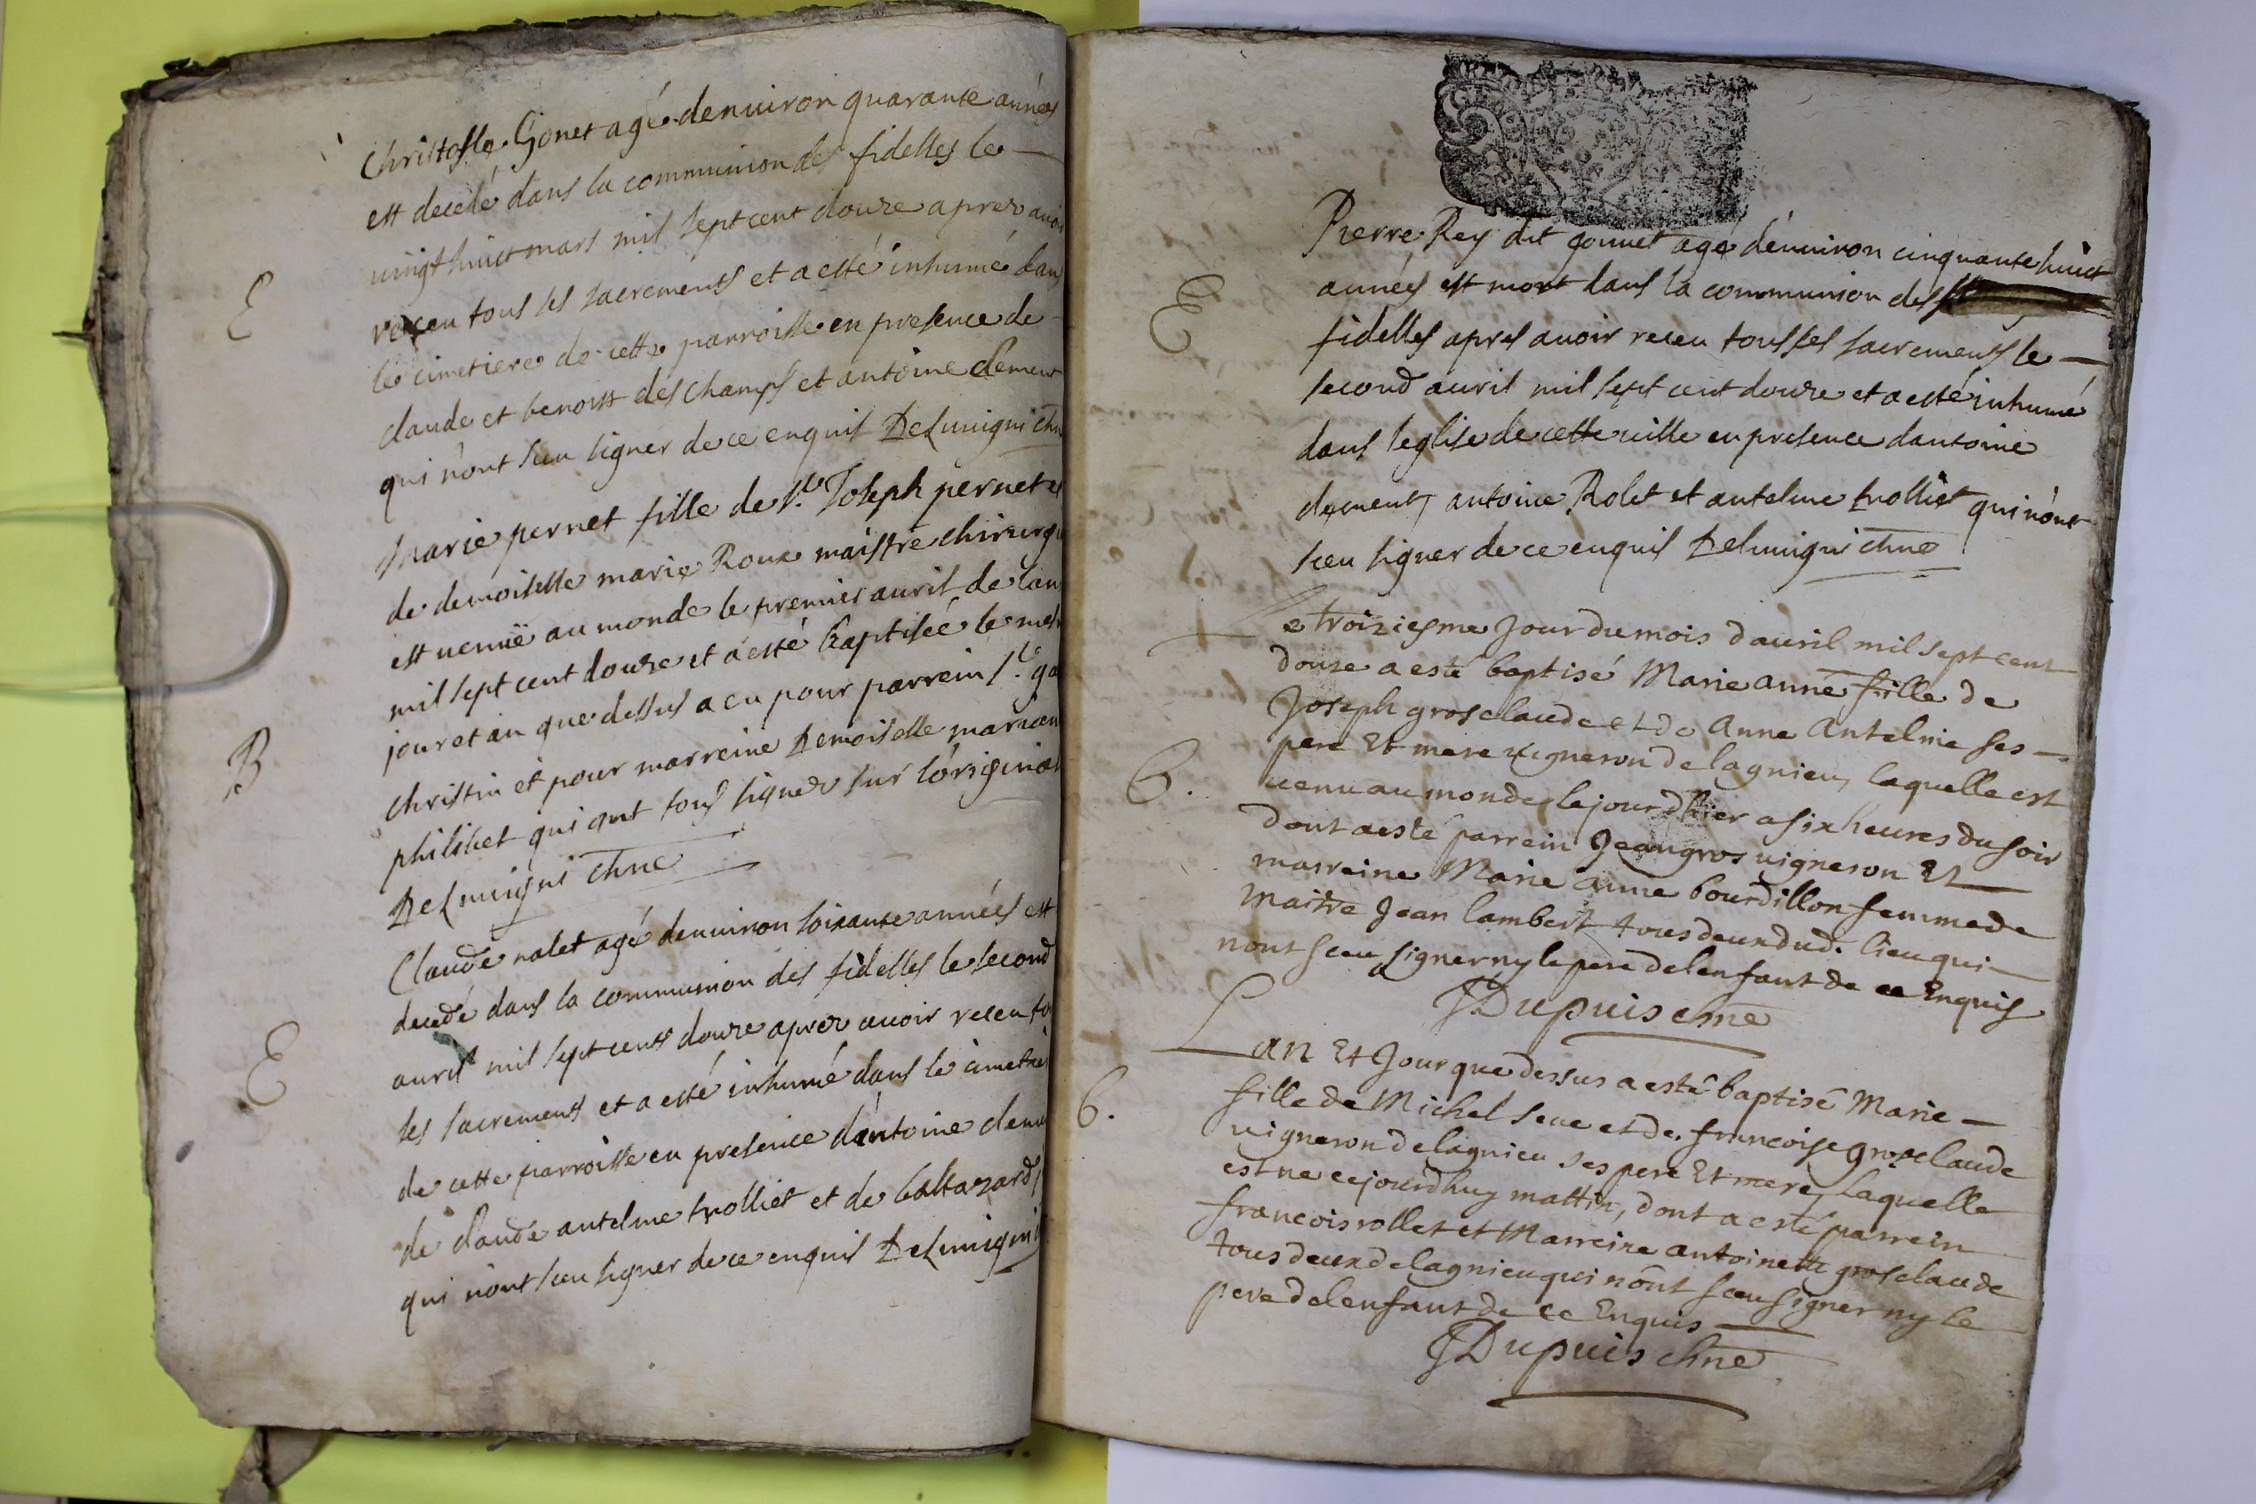 Christofle Gonet agé denuiron quarante années
est decedé dans la communion des fidelles le
uingt huict mars mil sept cent douze aprez auoir
E
receu tous ses sacrements et a esté inhumé dan
le cimetiere de cette parroisse en presence de
claude et benoist deschamps et antoine clement
qui n'ont sceu signer de ce enquis Delmigni chne
Marie pernet fille de Sr. Joseph pernet et
de demoiselle marie Roux maistre chirurg
est uenuë au monde le premier auril de lan
mil sept cent douze et a esté baptisée le mes
jour et an que dessus a eu pour parrein Sr. ga
B
christin et pour marreine Demoiselle marian
philibet qui ont tous signez sur l'original
Delmigni chne
Claude nalet agé denuiron soixante années est
decedé dans la communion des fidelles le second
E
auril mil sept cents douze aprez auoir receu to
ses sacrements et a esté inhumé dans le cimetie
de cette parroisse en presence d'antoine cleme
de claude antelme trolliet et de baltazard
qui n'ont sceu signer de ce enquis Delmigni
Pierre Rey dit gonnet agé denuiron cinquante huict
années est mort dans la communion des
E
fidelles apres auoir receu tous ses sacrements le
second auril mil sept cent douze et a esté inhumé
dans leglise de cette uille en presence dantoine
clement, antoine Rolet et antelme trolliet qui n'ont
sceu signer de ce enquis Delmigni chne
Le troiziesme Jour du mois d'auril mil sept cent
douze a esté baptisé Marie anne fille de
Joseph grosclaude et de Anne Antelme ses
pere Et mere uigneron de lagnieu, laquelle est
B.
uenu au monde le jour d'hier a six heures du soir
dont a esté parrein Jean gros uigneron Et
marreine Marie anne bourdillon femme de
maitre Jean lambert tous deux dud. lieu qui
nont sceu signer ny le pere de lenfant de ce Enquis
JDupuis chne
Lan Et Jour que dessus a esté baptisé Marie
6.
fille de Michel seue et de francoise grosclaude
uigneron de lagnieu ses pere Et mere, Laquelle
est ne cejourdhuy mattin, dont a esté parrein
francois rollet et Marreine antoinette grosclaude
tous deux de lagnieu qui nont sceu signer ny le
pere de lenfant de ce Enquis
JDupuis chne